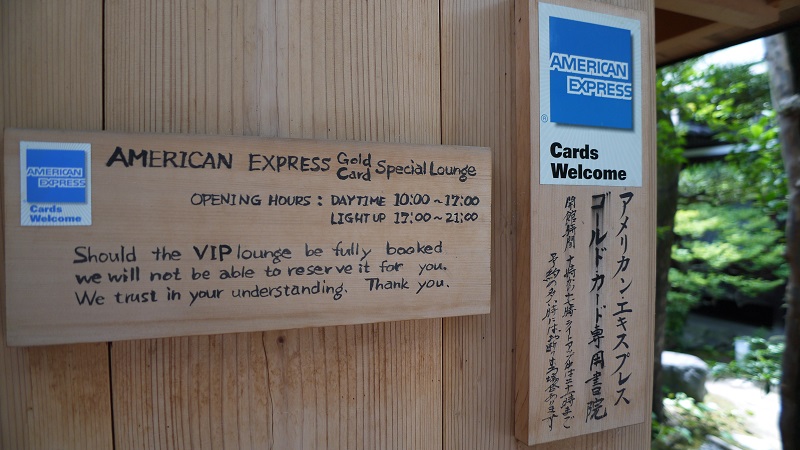 AMERICAN
EXPRESS
Cards
Welcome
AMERICAN EXPRESS Gold Card Special Lounge
OPENING HOURS : DAYTIME 10:00~17:00
LIGHT UP 17:00~21:00
Should the VIP lounge be fully booked
we will not be able to reserve it for you.
We trust in your understanding. Thank you.
AMERICAN
EXPRESS
®
Cards
Welcome
アメリカン・エキスプレス
ゴールド・カード専用書院
開館時間 十時から十七時 ライトアップ時は二十一時まで
予約の多い時にはお断りする場合があります